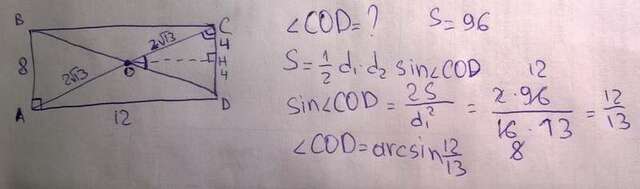 B
C
2√13
4
8
O
H
2√13
4
A
D
12
∠COD=? S=96
S=1/2 d₁·d₂ sin∠COD
sin∠COD=2S/d₁²=2·96/16·13=12/13
12
8
∠COD=arcsin 12/13